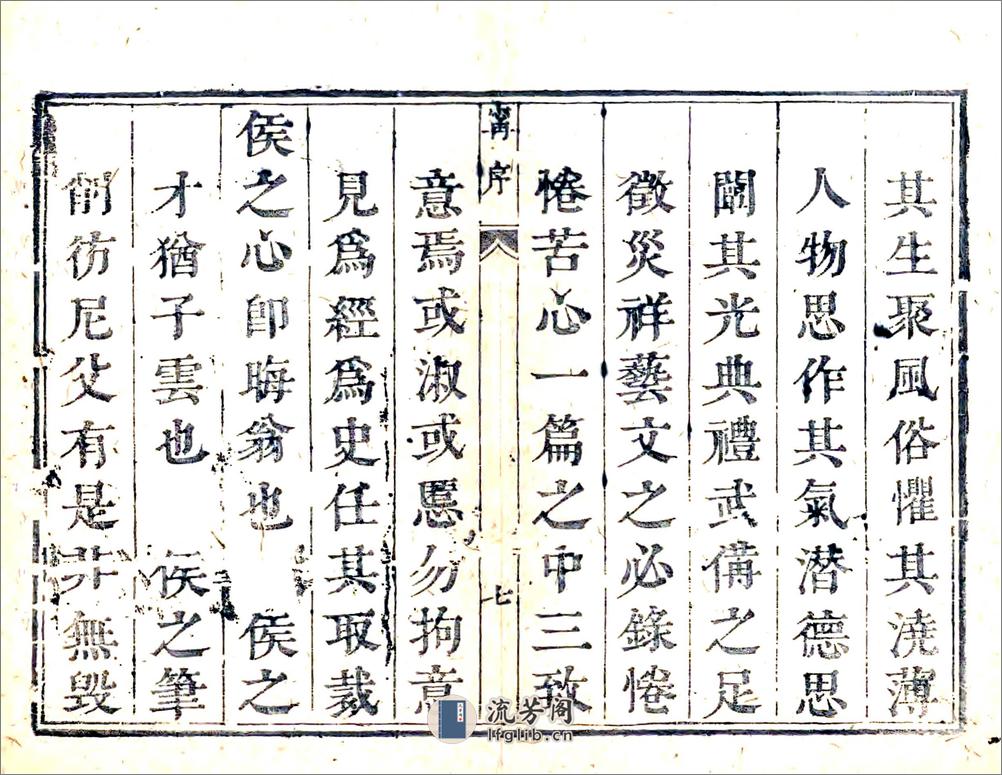 其生聚風俗懼其澆薄
人物思作其氣潛德思
闡其光典禮武備之足
徵災祥藝文之必錄惓
惓苦心一篇之中三致
序
七
意焉或淑或慝勿拘意
見爲經爲史任其取裁
侯之心卽晦翁也 侯之
才猶子雲也 侯之筆
削彷尼父有是非無毀
流芳阁
lfglib.cn